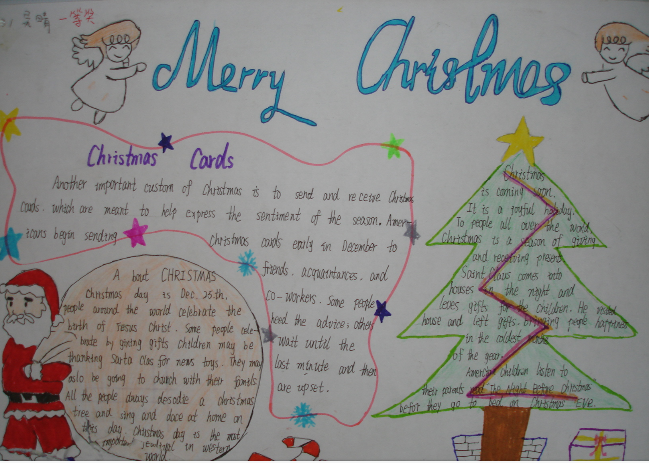 一等奖
Merry Christmas
Christmas Cards
Another important custom of Christmas is to send and receive Christmas
cards. which are meant to help express the sentiment of the season. Amer-
icans begin sending Christmas cards early in December to
friends. acquaintances. and
co-workers. Some people
heed the advice; others
wait until the
last minute and then
are upset.
A bout CHRISTMAS
Christmas day is Dec. 25th.
people around the world celebrate the
birth of Jesus Christ. Some people cele-
brate by giving gifts children may be
thanking Santa Clas for news toys. They may
aslo be going to church with their family
All the people always a christmas
tree and sing and dace at home on
this day Christmas day is the most
important in western
Christmas
is coming soon.
It is a joyful holiday.
To people all over the world
Christmas is a season of giving
and receiving present
Saint Claus comes into
houses in the night and
leves gifts for the children. He visited
house and left gifts. bringing people happiness
in the coldest
of the year.
American children listen to
their parents The Night Before Christmas
befor they go to bed on Christmas Eve.